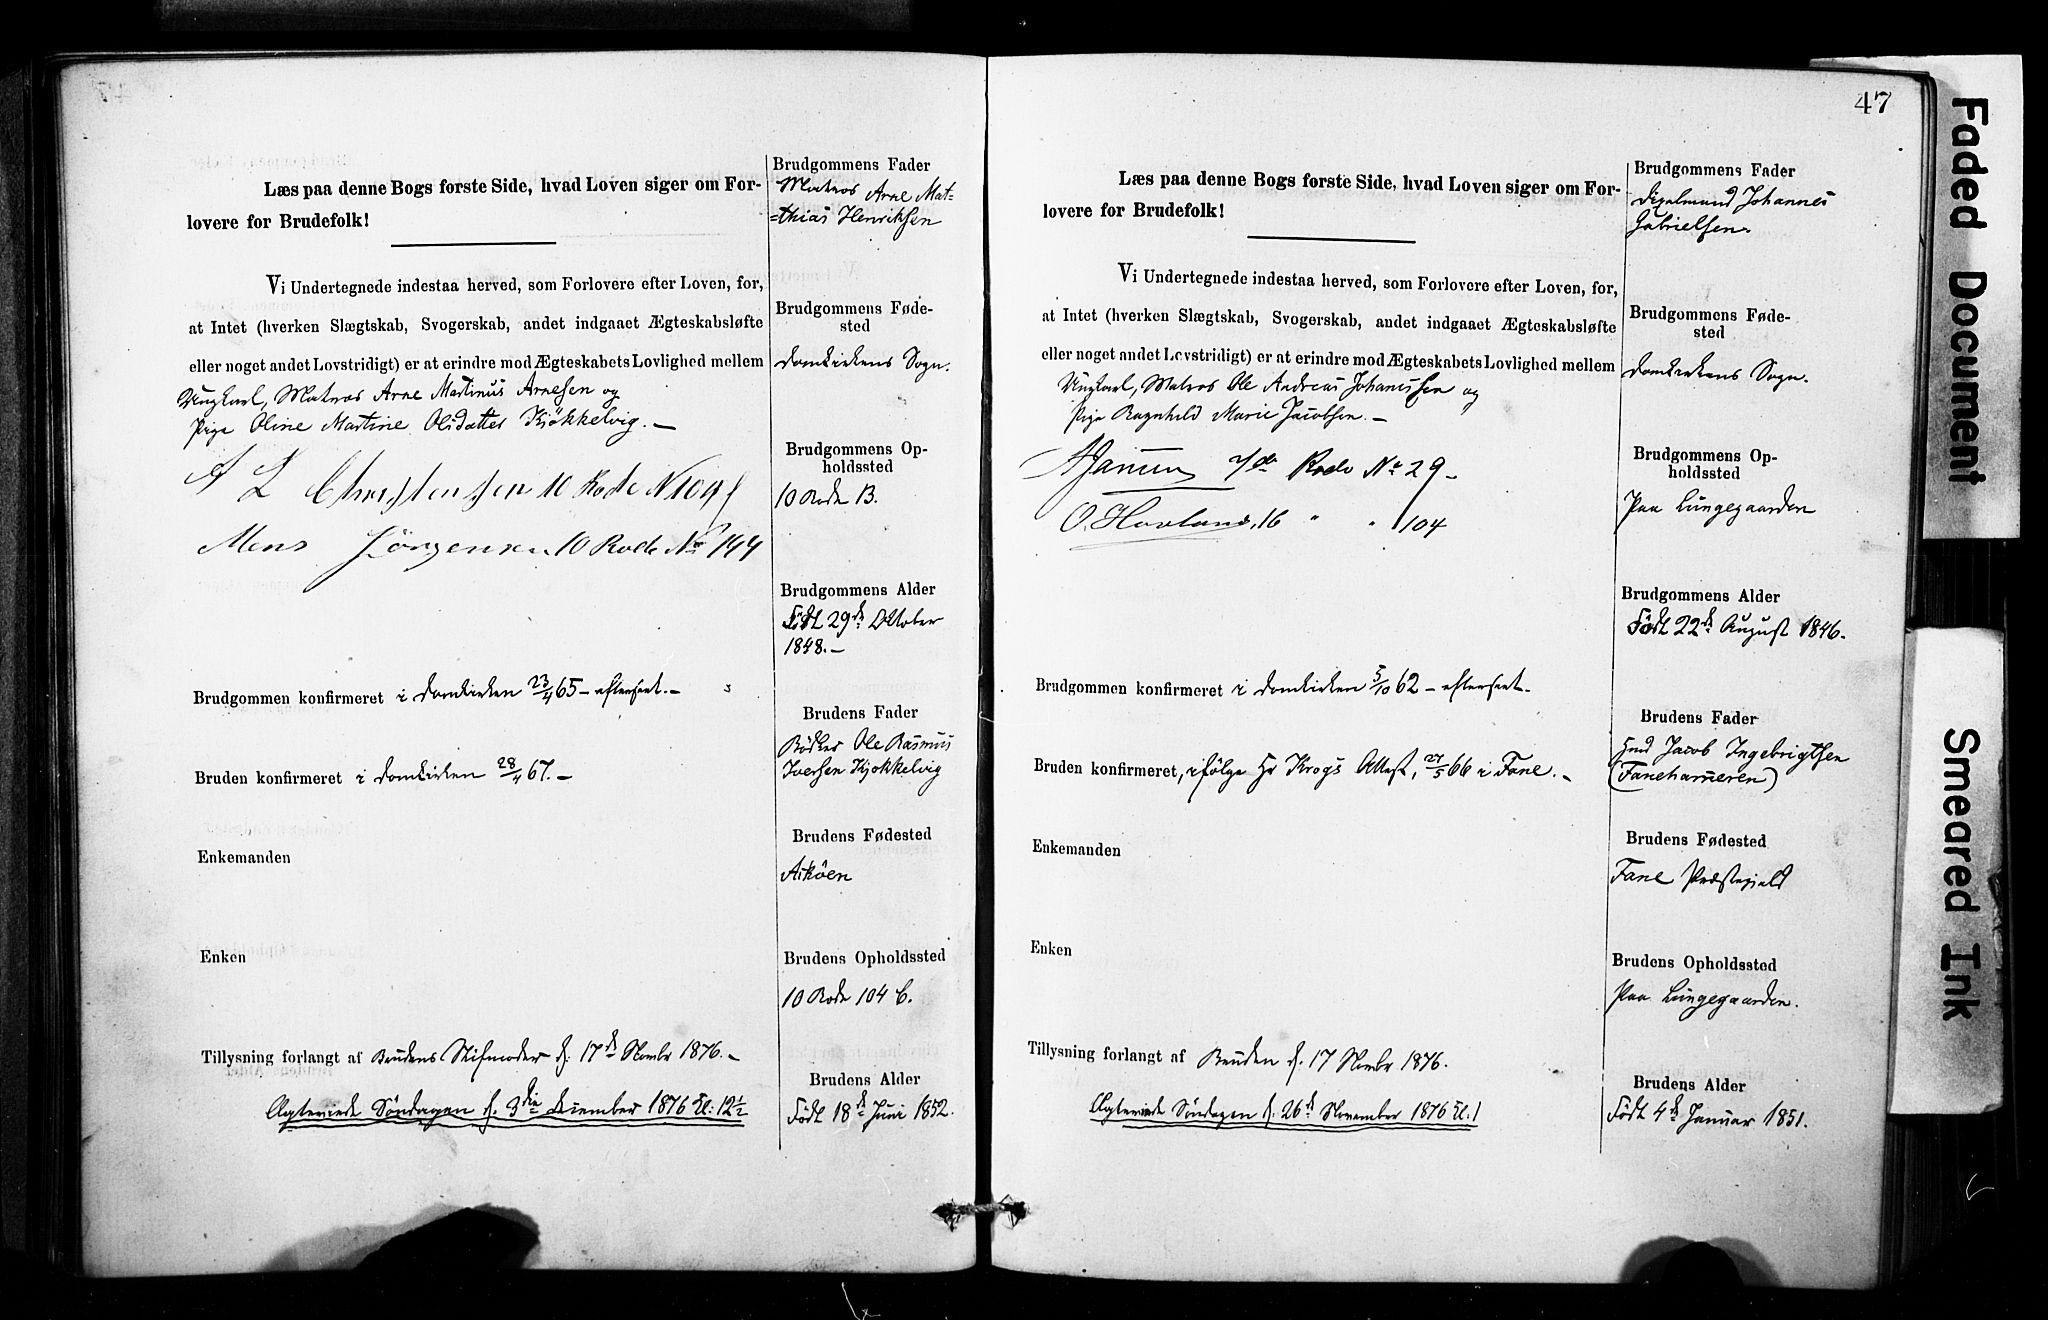 Læs paa denne Bogs første Side, hvad Loven siger om For-
lovere for Brudefolk!
Vi Undertegnede indestaa herved, som Forlovere efter Loven, for,
at Intet (hverken Slægtskab, Svogerskab, andet indgaaet Ægteskabsløfte
eller noget andet Lovstridigt) er at erindre mod Ægteskabets Lovlighed mellem
Ungkarl, Matros Arne Martinus Arnesen og
Pige Oline Martine Olsdatter Kjökkelvig. —
A L Christensen 10 Rode N 109
Mons Jörgensen 10 Rode No 194
Brudgommen konfirmeret i Domkirken 23/4 65 – efterseet. –
Bruden konfirmeret i Domkirken 28/4 67. –
Enkemanden
Enken
Tillysning forlangt af Brudens Stifmoder d. 17de Novbr 1876. –
Söndagen d. 3die December 1876 Kl: 12 1/2
Brudgommens Fader
Matros Arne Mat-
=thias Henriksen
Brudgommens Føde-
sted
Domkirkens Sogn.
Brudgommens Op-
holdssted
10 Rode 13.
Brudgommens Alder
Födt 29de Oktober
1848. –
Brudens Fader
Bödker Ole Rasmus
Iversen Kjökkelvig
Brudens Fødested
Askøen
Brudens Opholdssted
10 Rode 104 b.
Brudens Alder
Födt 18de Juni 1852.
47
Læs paa denne Bogs første Side, hvad Loven siger om For-
lovere for Brudefolk!
Vi Undertegnede indestaa herved, som Forlovere efter Loven, for,
at Intet (hverken Slægtskab, Svogerskab, andet indgaaet Ægteskabsløfte
eller noget andet Lovstridigt) er at erindre mod Ægteskabets Lovlighed mellem
Ungkarl, Matros Ole Andreas Johannessen og
Pige Ragnhild Marie Jacobsen. –
Rode No 29 –
O. Hovland, 16 " " 104
Brudgommen konfirmeret i Domkirken 5/10 62 – efterseet –
Bruden konfirmeret, ifölge Hr Krogs Attest, 27/5 66 i Fane. –
Enkemanden
Enken
Tillysning forlangt af Bruden d. 17 Novbr 1876.
Söndagen d. 26de November 1876 Kl. 1
Brudgommens Fader
Johannes
Gabrielsen.
Brudgommens Føde-
sted
Domkirkens Sogn.
Brudgommens Op-
holdssted
Paa Lungegaarden
Brudgommens Alder
Födt 22de August 1846.
Brudens Fader
Jacob Ingebrigtsen
(Fanehameren)
Brudens Fødested
Fane Præstegjeld
Brudens Opholdssted
Paa Lungegaarden.
Brudens Alder
Födt 4de Januar 1851.
Faded Document
Smeared Ink